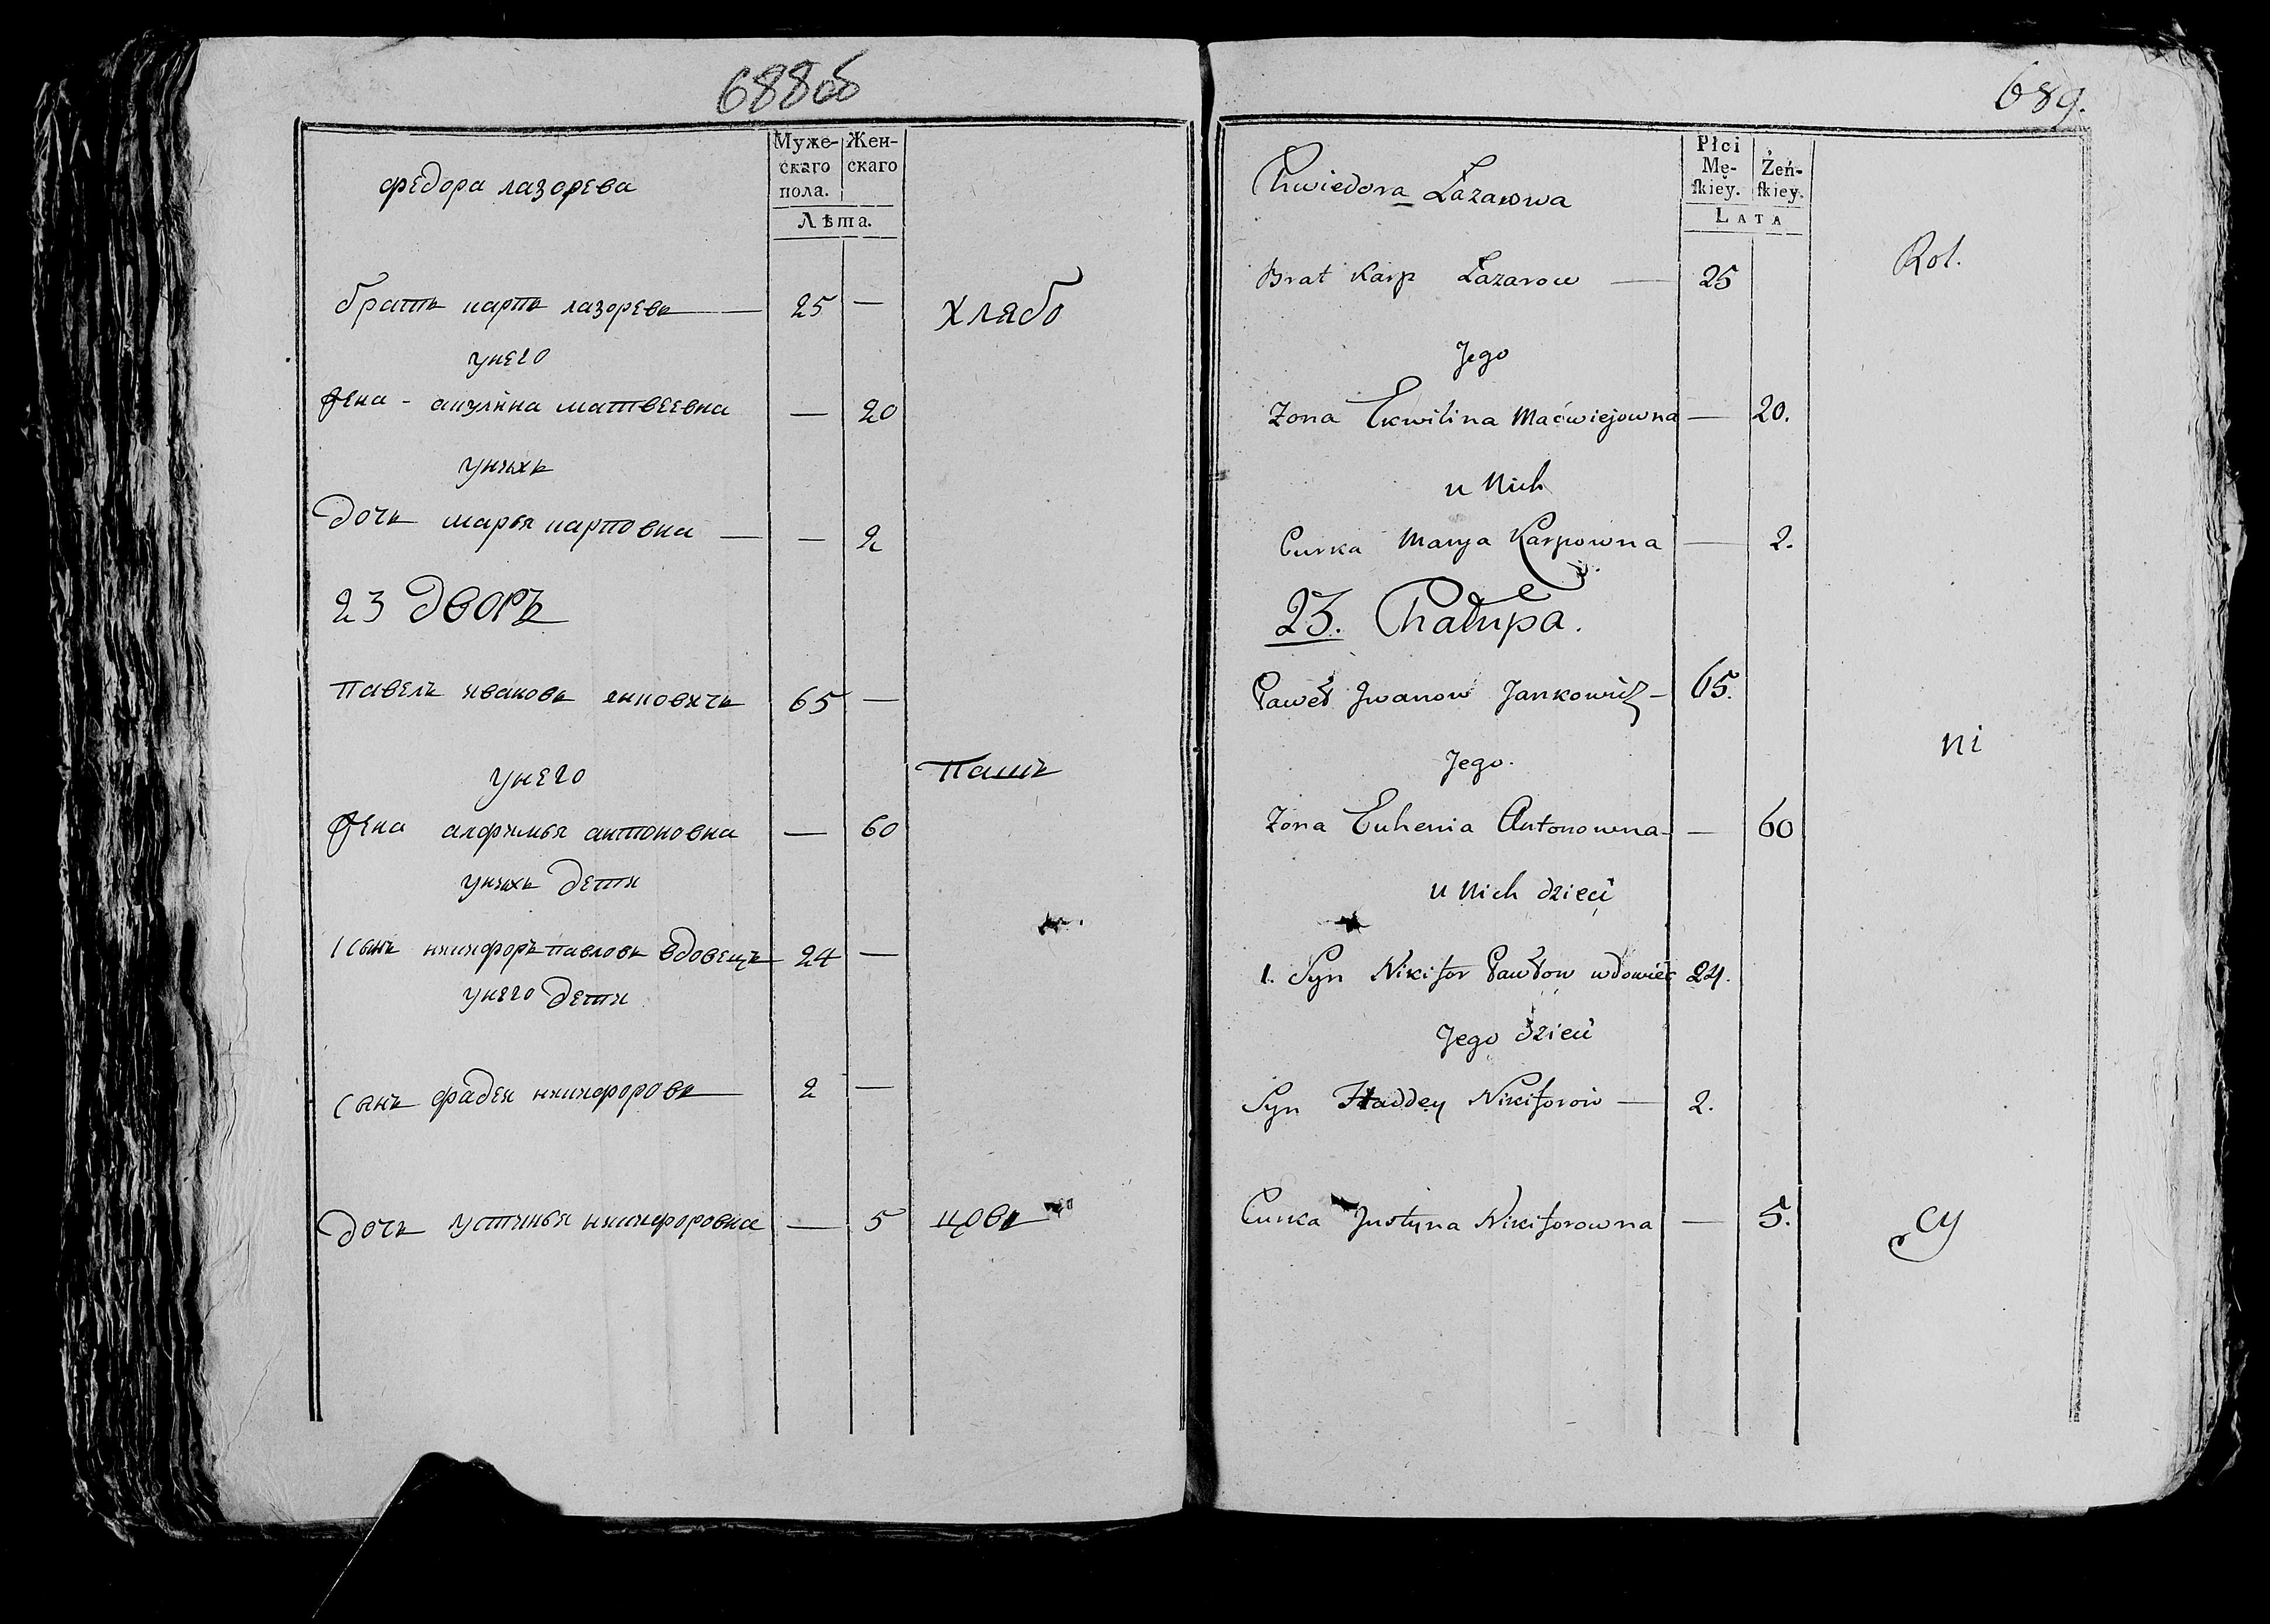 688об
Муже-скаго пола. Жен-скаго
Лѣта.
федора лазорева
братъ карпъ лазоревъ — 25 —
хлябо
унего
жена - акулина матвеевна — 20
унихъ
дочь марья карповна — — 2
23 дворъ
павелъ ивановъ янковичъ 65 —
унего
пашъ
жена алфимья антоновна — 60
унихъ дети
1 сынъ никифоръ павловъ вдовецъ 24 —
унего дети
сынъ фадеи никифоровъ 2 —
дочь устинья никифоровна — 5
цовъ
689.
Płci Mę-skiey. Żeń-skiey.
LATA
Chwiedora Łazarowa
Rol.
Brat Karp Łazarow — 25
Jego
Zona Ekwilina Maćwiejowna — 20.
u Nich
Curka Marya Karpowna — 2.
23. Chałupa.
Paweł Jwanow Jankowicz — 65.
ni
Jego.
Zona Euhenia Antonowna — — 60
u Nich dzieci
1. Syn Nikifor Pawłow wdowiec 24.
Jego dzieci
Syn Thaddey Nikiforow — 2.
Curka Justyna Nikiforowna — 5.
cy